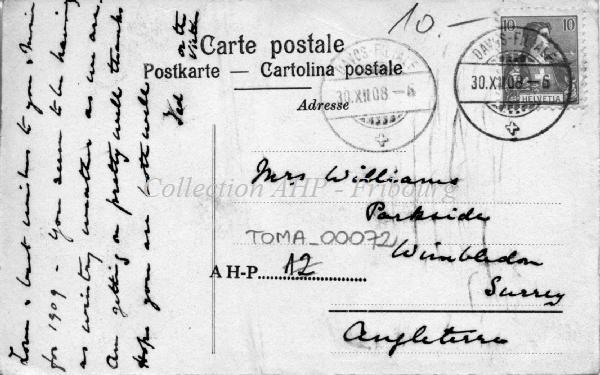 10.—
Carte postale
Postkarte — Cartolina postale
Adresse
DAVOS-FILIALE
30.XII.08 – 6
DAVOS-FILIALE
30.XII.08 – 6
10 10
HELVETIA
Mrs Williams
Parkside
Wimbledon
Surrey
Angleterre
Collection AHP - Fribourg
TOMA_00072
A H-P. AZ
Love & best wishes to you &
for 1909 – you seem to be having
as wintry weather as we are.
Am getting on pretty well thanks
Hope you are both well